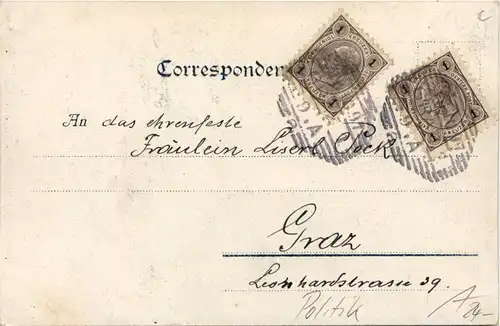 Corresponden
An das ehrenfeste
Fräulein Liserl Pock
Graz
Leonhardstrasse 39.
Politik
1 1 1 1
1 1 1